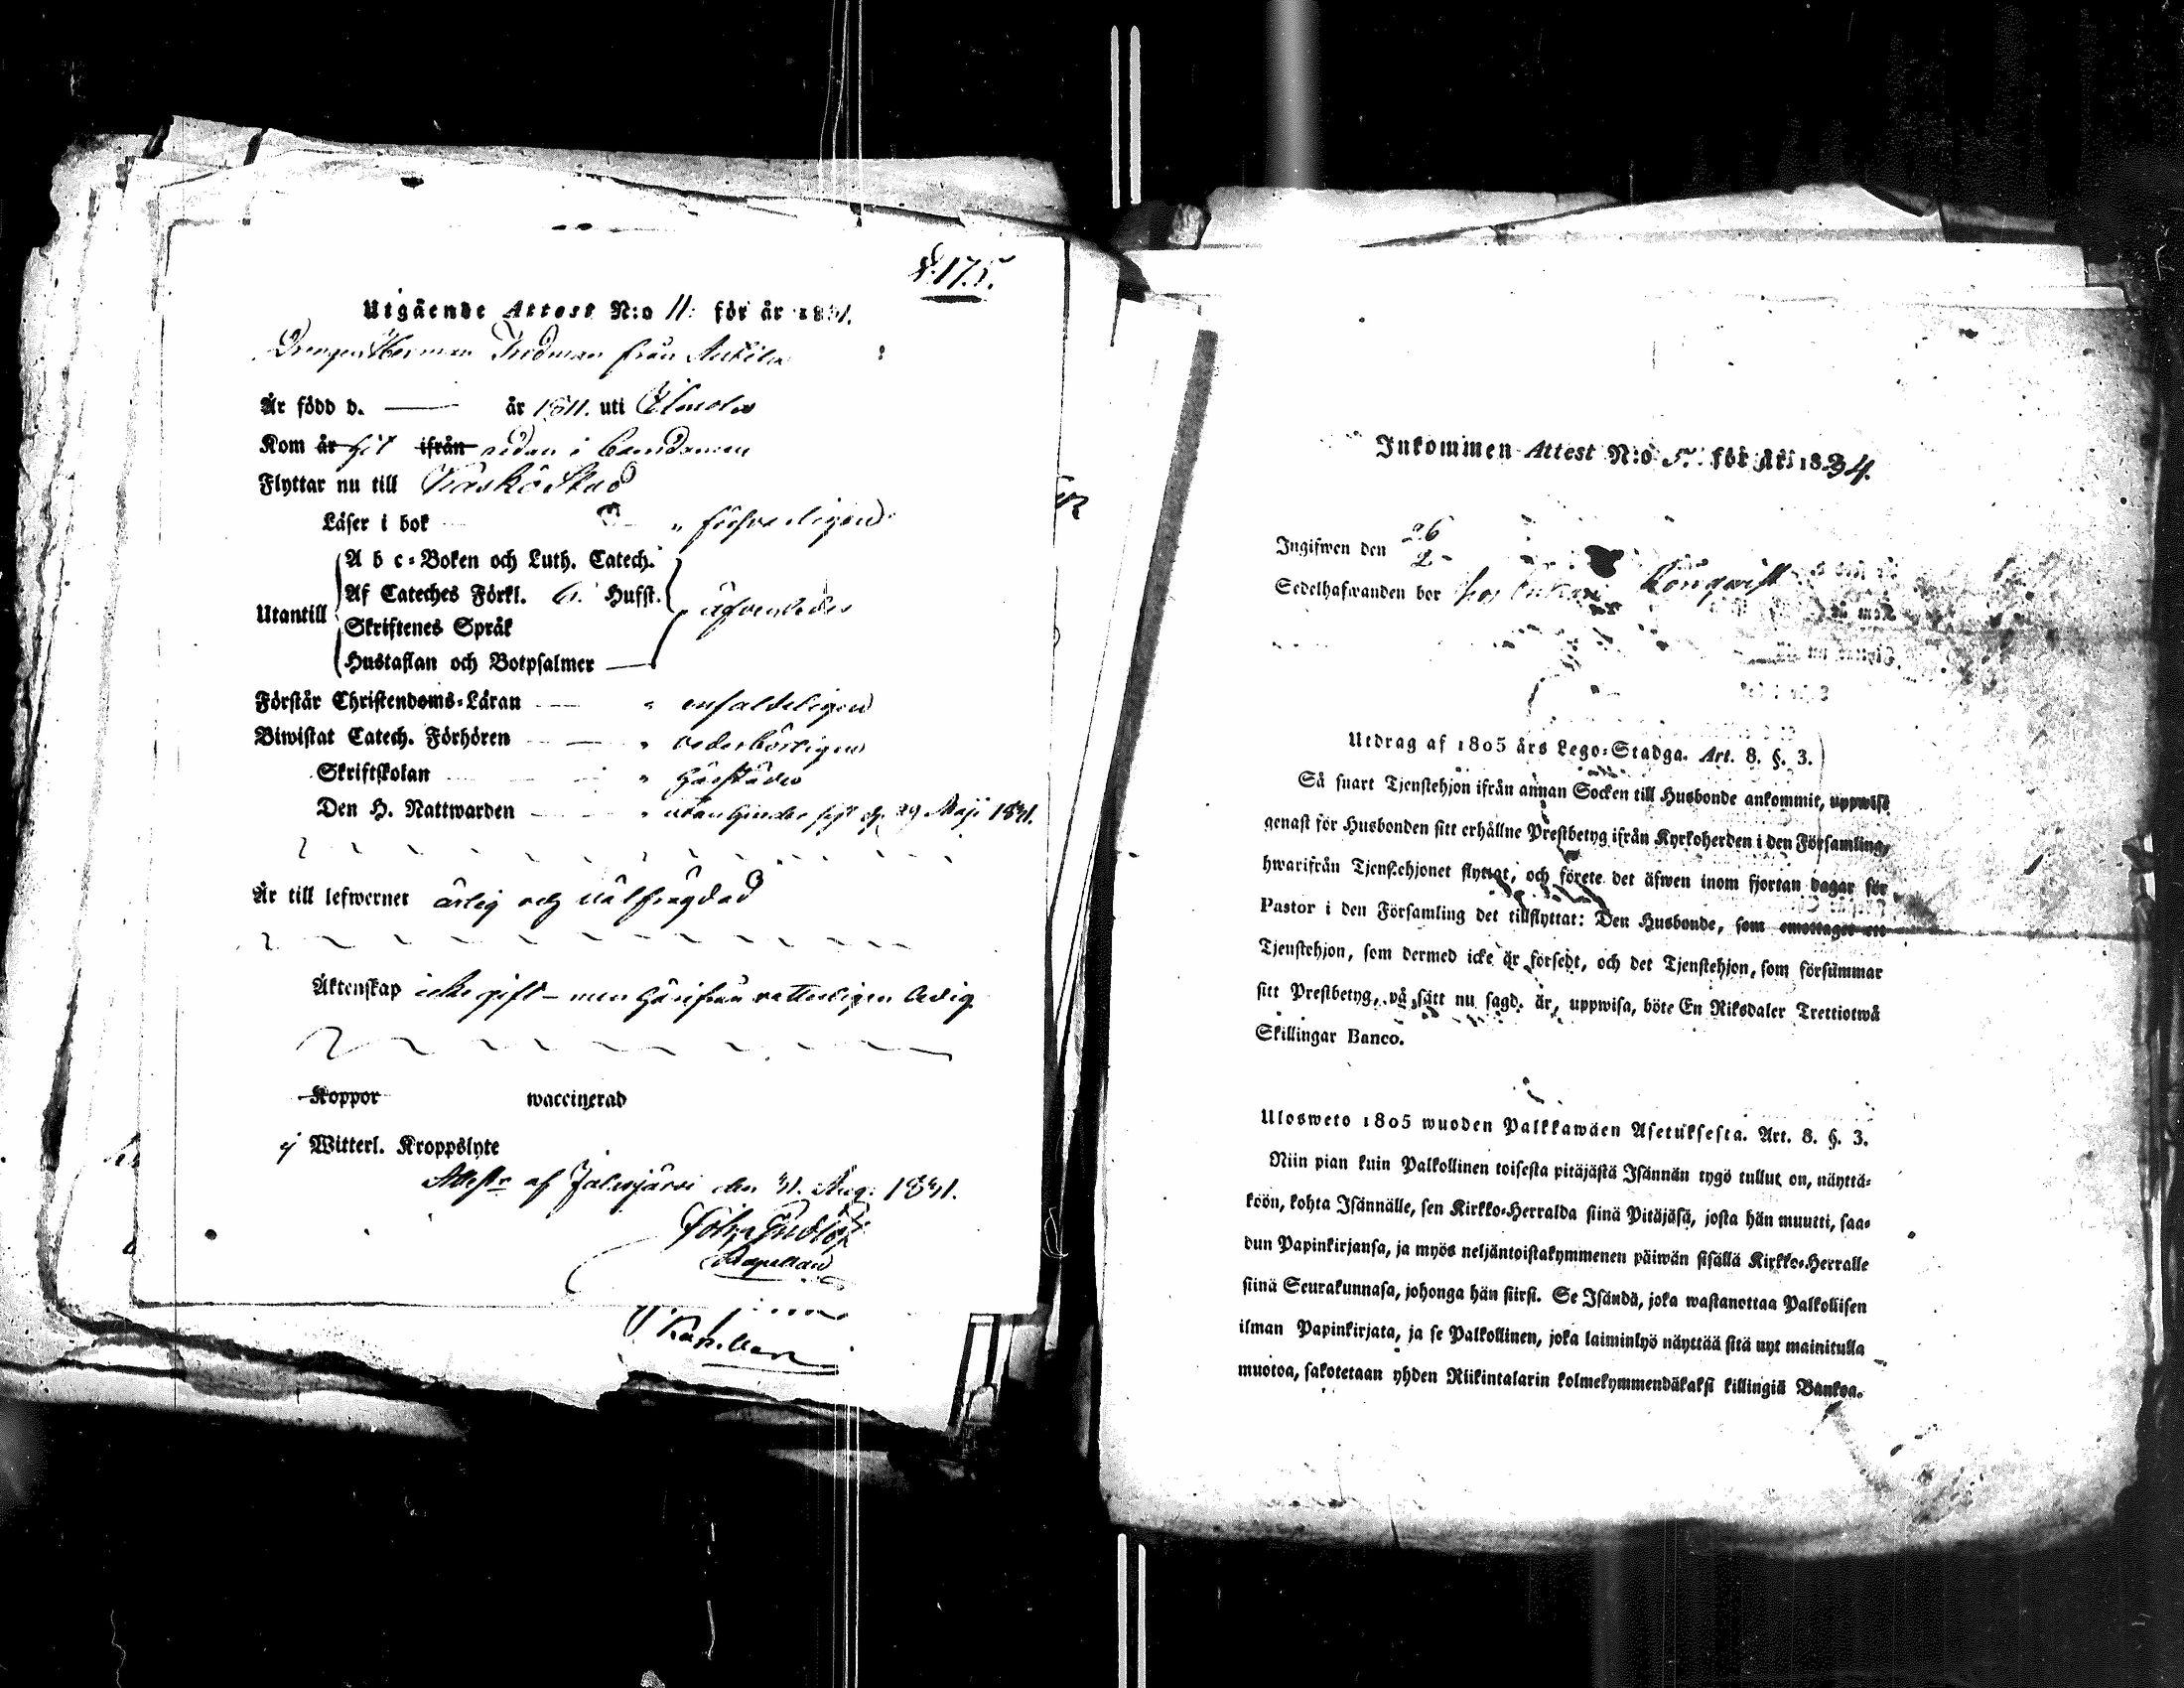 175.
Utgående Attest N:o 11. för år 1831.
Drengen Herman från
År född d. år 1811. uti Ilmola
Kom år hit ifrån sedan i barndomen
Flyttar nu till Kaskö Stad
Läser i bok försvarligen
A b c-Boken och Luth. Catech.
Af Cateches Förkl. Hufst.
Utantill äfvenledes
Skriftenes Språk
Hustaflan och Botpsalmer
Förstår Christendoms-Läran enfaldeligen
Biwistat Catech. Förhören vederbörligen
Skriftskolan härstädes
Den H. Nattwarden utan hinder sist d. 29 Maji 1831.
År till lefwernet ärlig och välfrägdad
Äktenskap icke gift – men härifrån ledig
Koppor waccinerad
ej Witterl. Kroppslyte
af Jalasjärvi den 31. Aug. 1831.
Kapellan
Inkommen Attest N:o 5. för år 1834.
Ingifwen den 26/2
Sedelhafwanden bor hos Lönqwist
Utdrag af 1805 års Lego-Stadga. Art. 8. §. 3.
Så snart Tjenstehjon ifrån annan Socken till Husbonde ankommit, uppwise
genast för Husbonden sitt erhållne Prestbetyg ifrån Kyrkoherden i den Församling,
hwarifrån Tjenstehjonet flyttat, och förete det äfwen inom fjortan dagar för
Pastor i den Församling det tillflyttat: Den Husbonde, som emottaget ett
Tjenstehjon, som dermed icke är försedt, och det Tjenstehjon, som försummar
sitt Prestbetyg, på sätt nu sagd. är, uppwisa, böte En Riksdaler Trettiotwå
Skillingar Banco.
Ulosweto 1805 wuoden Palkkawäen Asetuksesta. Art. 8. §. 3.
Niin pian kuin Palkollinen toisesta pitäjästä Isännän tygö tullut on, näyttä-
köön, kohta Isännälle, sen Kirkko-Herralda siinä Pitäjäsä, josta hän muutti, saa-
dun Papinkirjansa, ja myös neljäntoistakymmenen päiwän sisällä Kirkko-Herralle
siinä Seurakunnasa, johonga hän siirsi. Se Isändä, joka wastanottaa Palkollisen
ilman Papinkirjata, ja se Palkollinen, joka laiminlyö näyttää sitä nyt mainitulla
muotoa, sakotetaan yhden Riikintalarin kolmekymmendäkaksi killingiä Bankoa.